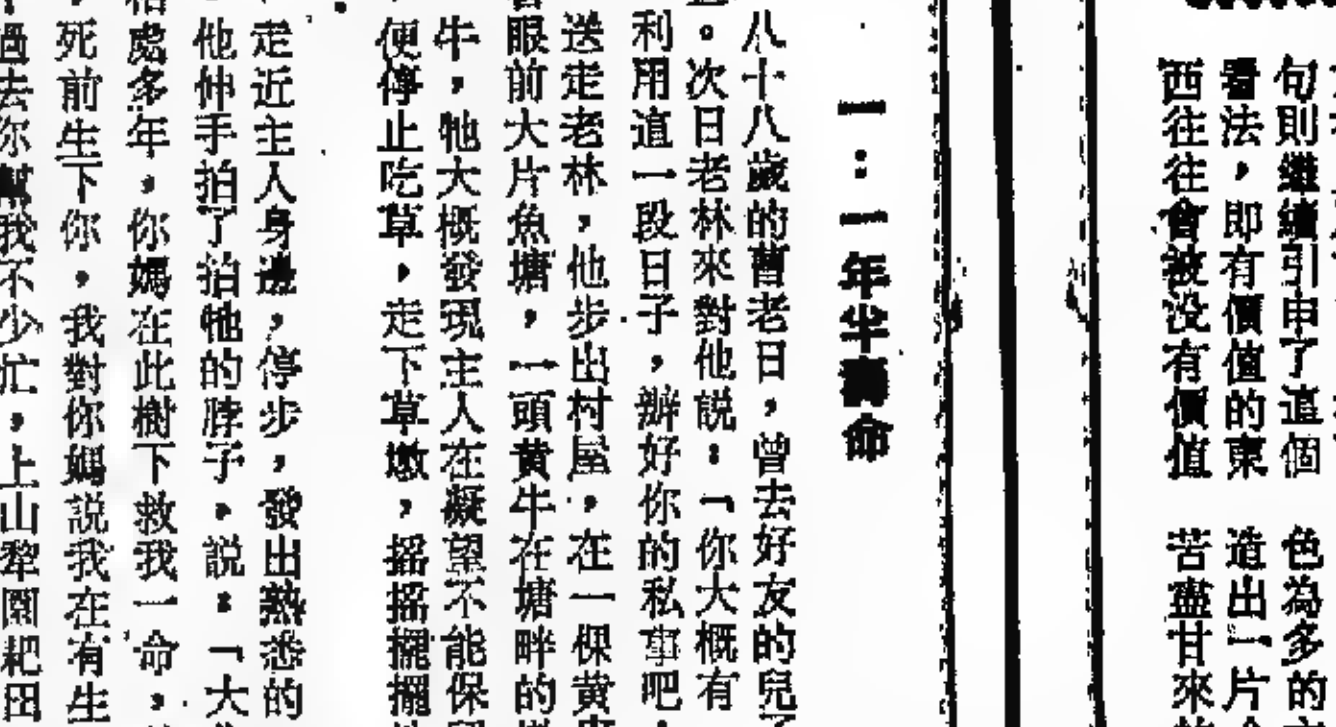 句則繼續引申了這個
看法，即有價值的東
西往往會被没有價值
色為多的
造出一片
苦盡甘來
一：一年半壽命
八十八歲的曹老日，曾去好友的兒
。次日老林來對他説：「你大概有
利用這一段日子，辦好你的私事吧，
送走老林，他步出村屋，在一棵黄
眼前大片魚塘，一頭黄牛在塘畔的
牛，牠大概發現主人在凝望不能保
便停止吃草，走下草墩，搖搖擺擺
走近主人身邊，停步，發出熟悉的
他伸手拍了拍牠的脖子，説：「大
相處多年，你媽在此樹下救我一命，
死前生下你，我對你媽説我在有生
過去你幫我不少忙，上山犂園耙田